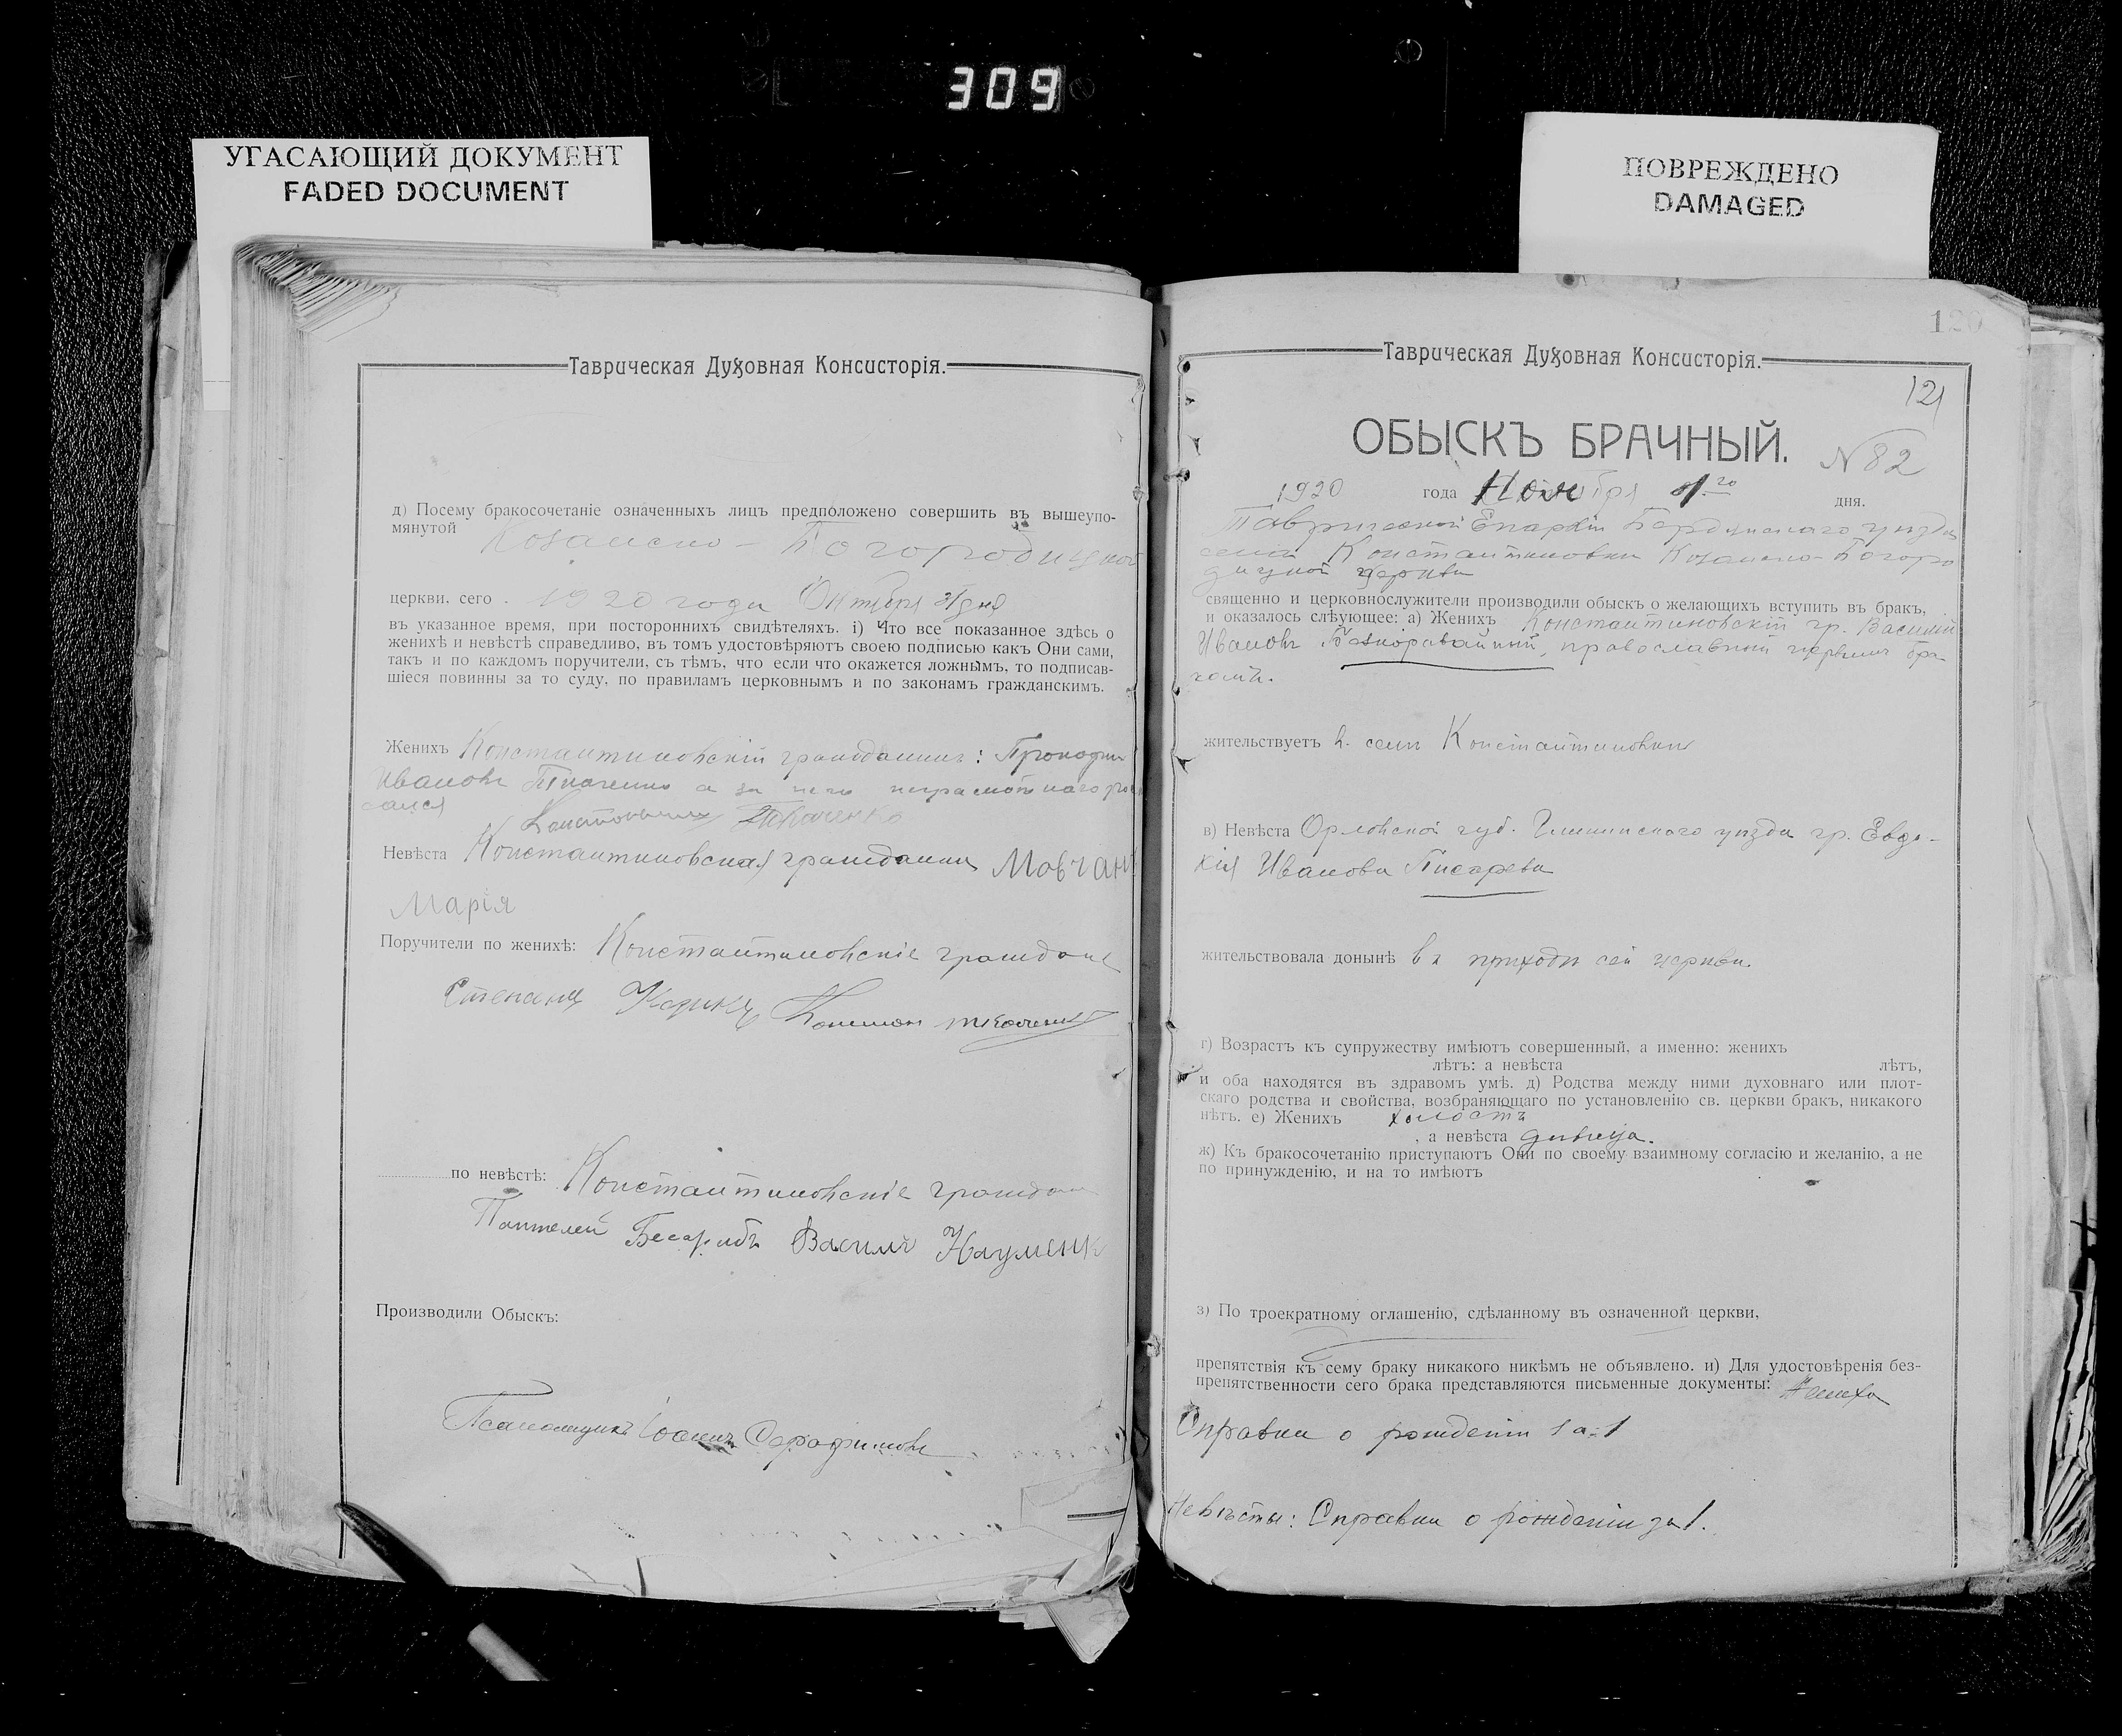 309
УГАСАЮЩИЙ ДОКУМЕНТ
FADED DOCUMENT
ПОВРЕЖДЕНО
DAMAGED
Таврическая Духовная Консисторія.
д) Посему бракосочетаніе означенныхъ лицъ предположено совершить въ вышеупо-
мянутой Казанско-Богородицкой
церкви. сего 1920 года Октября 31 дня
въ указанное время, при постороннихъ свидѣтеляхъ. і) Что все показанное здѣсь о
женихѣ и невѣстѣ справедливо, въ томъ удостовѣряютъ своею подписью какъ Они сами,
такъ и по каждомъ поручители, съ тѣмъ, что если что окажется ложнымъ, то подписав-
шіеся повинны за то суду, по правиламъ церковнымъ и по законамъ гражданскимъ.
Женихъ Константиновскій гражданинъ:
Ивановъ Ткаченко а за него неграмотнаго
Ткаченко
Невѣста Константиновская гражданка Мовчан
Марія
Поручители по женихѣ: Константиновскіе граждане
Степанъ
по невѣстѣ: Константиновскіе граждане
Пантелей Василь Науменк
Производили Обыскъ:
Псаломщикъ Іоаннъ Серафимовъ
120
Таврическая Духовная Консисторія.
121
ОБЫСКЪ БРАЧНЫЙ.
N 82
1920 года Ноября 1го дня.
Таврической Епархіи Бердянскаго уѣзда
села Константиновки Казанско-Богоро
дицкой церкви
священно и церковнослужители производили обыскъ о желающихъ вступить въ бракъ,
и оказалось слѣующее: а) Женихъ Константиновскій гр. Василій
Ивановъ православный первымъ бра
комъ.
жительствуетъ в. селѣ Константиновкѣ
в) Невѣста Орловской губ. уѣзда гр. Евдо-
кія Иванова Писарева
жительствовала донынѣ въ приходѣ сей церкви.
г) Возрастъ къ супружеству имѣютъ совершенный, а именно: женихъ
лѣтъ: а невѣста лѣтъ,
и оба находятся въ здравомъ умѣ. д) Родства между ними духовнаго или плот-
скаго родства и свойства, возбраняющаго по установленію св. церкви бракъ, никакого
нѣтъ. е) Женихъ холостъ
, а невѣста дѣвица.
ж) Къ бракосочетанію приступаютъ Они по своему взаимному согласію и желанію, а не
по принужденію, и на то имѣютъ
з) По троекратному оглашенію, сдѣланному въ означенной церкви,
препятствія къ сему браку никакого никѣмъ не объявлено. и) Для удостовѣренія без-
препятственности сего брака представляются письменные документы: Жениха
Справка о рожденіи
Невѣсты: Справка о рожденіи за 1.